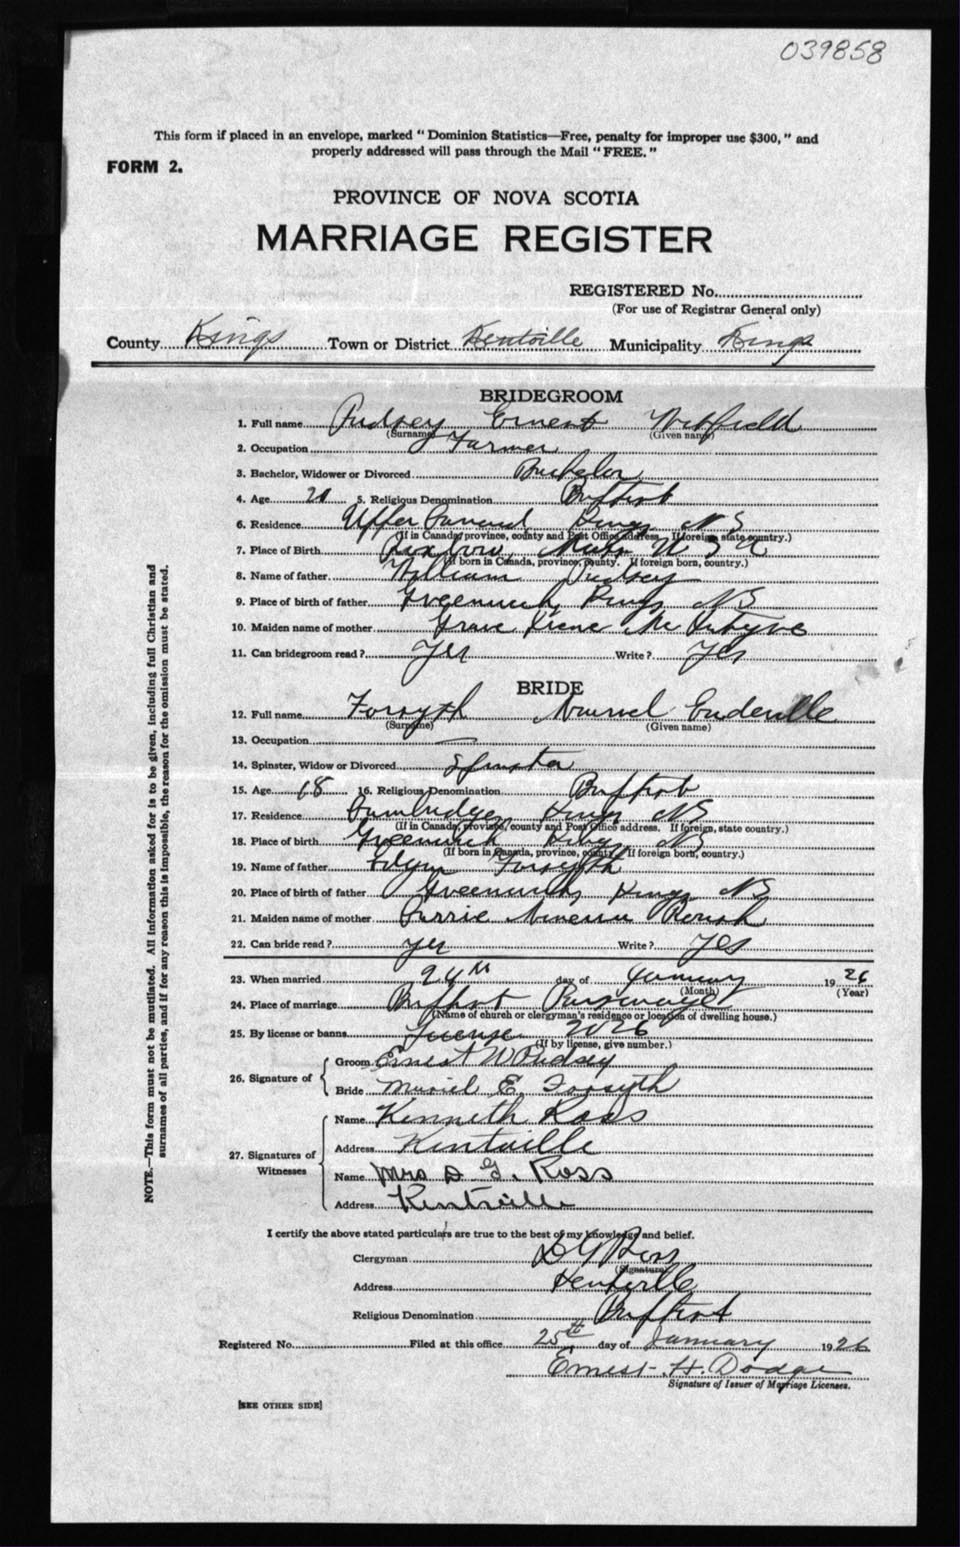 039858
This form if placed in an envelope, marked "Dominion Statistics—Free, penalty for improper use $300," and
properly addressed will pass through the Mail "FREE."
FORM 2.
PROVINCE OF NOVA SCOTIA
MARRIAGE REGISTER
REGISTERED No.
(For use of Registrar General only)
County Kings Town or District Kentville Municipality Kings
BRIDEGROOM
1. Full name Pudsey Ernest
(Surname) (Given name)
2. Occupation Farmer
3. Bachelor, Widower or Divorced Bachelor
4. Age 5. Religious Denomination Baptist
6. Residence Upper Canard Kings NS
(If in Canada, province, county and Post Office address. If foreign state country.)
7. Place of Birth U S A
(If born in Canada, province, county. If foreign born, country.)
8. Name of father William Pudsey
9. Place of birth of father Greenwich Kings NS
10. Maiden name of mother Grace Irene
11. Can bridegroom read? Yes Write? Yes
BRIDE
12. Full name Forsyth
(Surname) (Given name)
13. Occupation —
14. Spinster, Widow or Divorced Spinster
15. Age 18 16. Religious Denomination Baptist
17. Residence Cambridge Kings NS
(If in Canada, province, county and Post Office address. If foreign, state country.)
18. Place of birth Greenwich Kings NS
(If born in Canada, province, county. If foreign born, country.)
19. Name of father Forsyth
20. Place of birth of father Greenwich Kings NS
21. Maiden name of mother
22. Can bride read? yes Write? yes
23. When married 24th day of January 1926
(Month) (Year)
24. Place of marriage Baptist Parsonage
(Name of church or clergyman's residence or location of dwelling house.)
25. By license or banns License 2026
(If by license, give number.)
26. Signature of
Groom Ernest W Pudsey
Bride Muriel E. Forsyth
27. Signatures of Witnesses
Name Kenneth Ross
Address Kentville
Name Mrs D. G. Ross
Address Kentville
I certify the above stated particulars are true to the best of my knowledge and belief.
Clergyman D G Ross
(Signature)
Address Kentville
Religious Denomination Baptist
Registered No. Filed at this office 25th day of January 1926
Ernest H. Dodge
Signature of Issuer of Marriage Licenses.
[SEE OTHER SIDE]
NOTE.—This form must not be mutilated. All information asked for is to be given, including full Christian and
surnames of all parties, and if for any reason this is impossible, the reason for the omission must be stated.